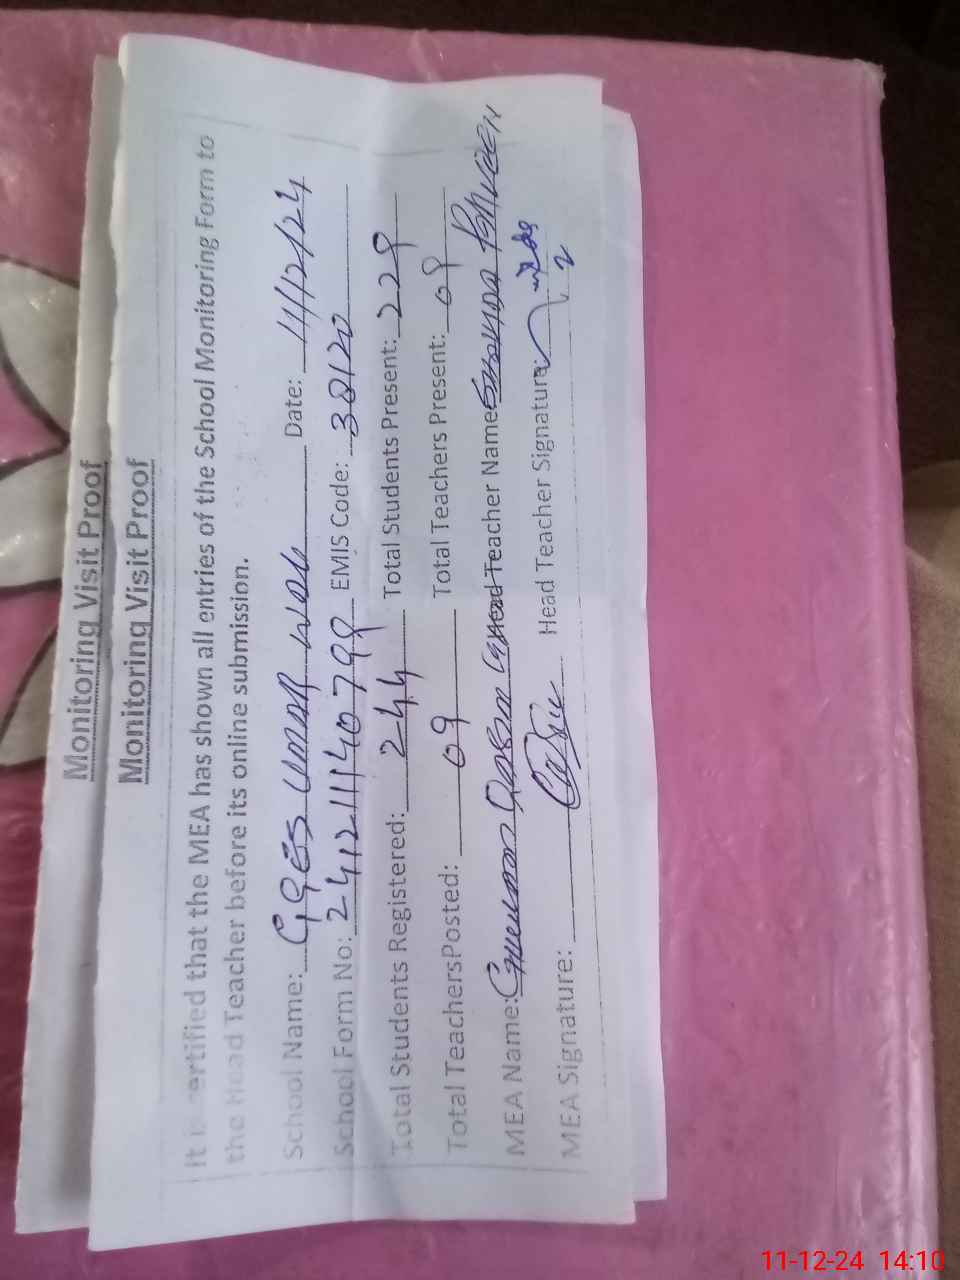 Monitoring Visit Proof
Monitoring Visit Proof
It is certified that the MEA has shown all entries of the School Monitoring Form to
the Head Teacher before its online submission.
School Name: GGES UMAR Date: 11/12/24
School Form No: 241211140798 EMIS Code: 38120
Total Students Registered: 244 Total Students Present: 229
Total Teachers Posted: 09 Total Teachers Present: 09
MEA Name: Head Teacher Name
MEA Signature: Head Teacher Signature:
11-12-24 14:10